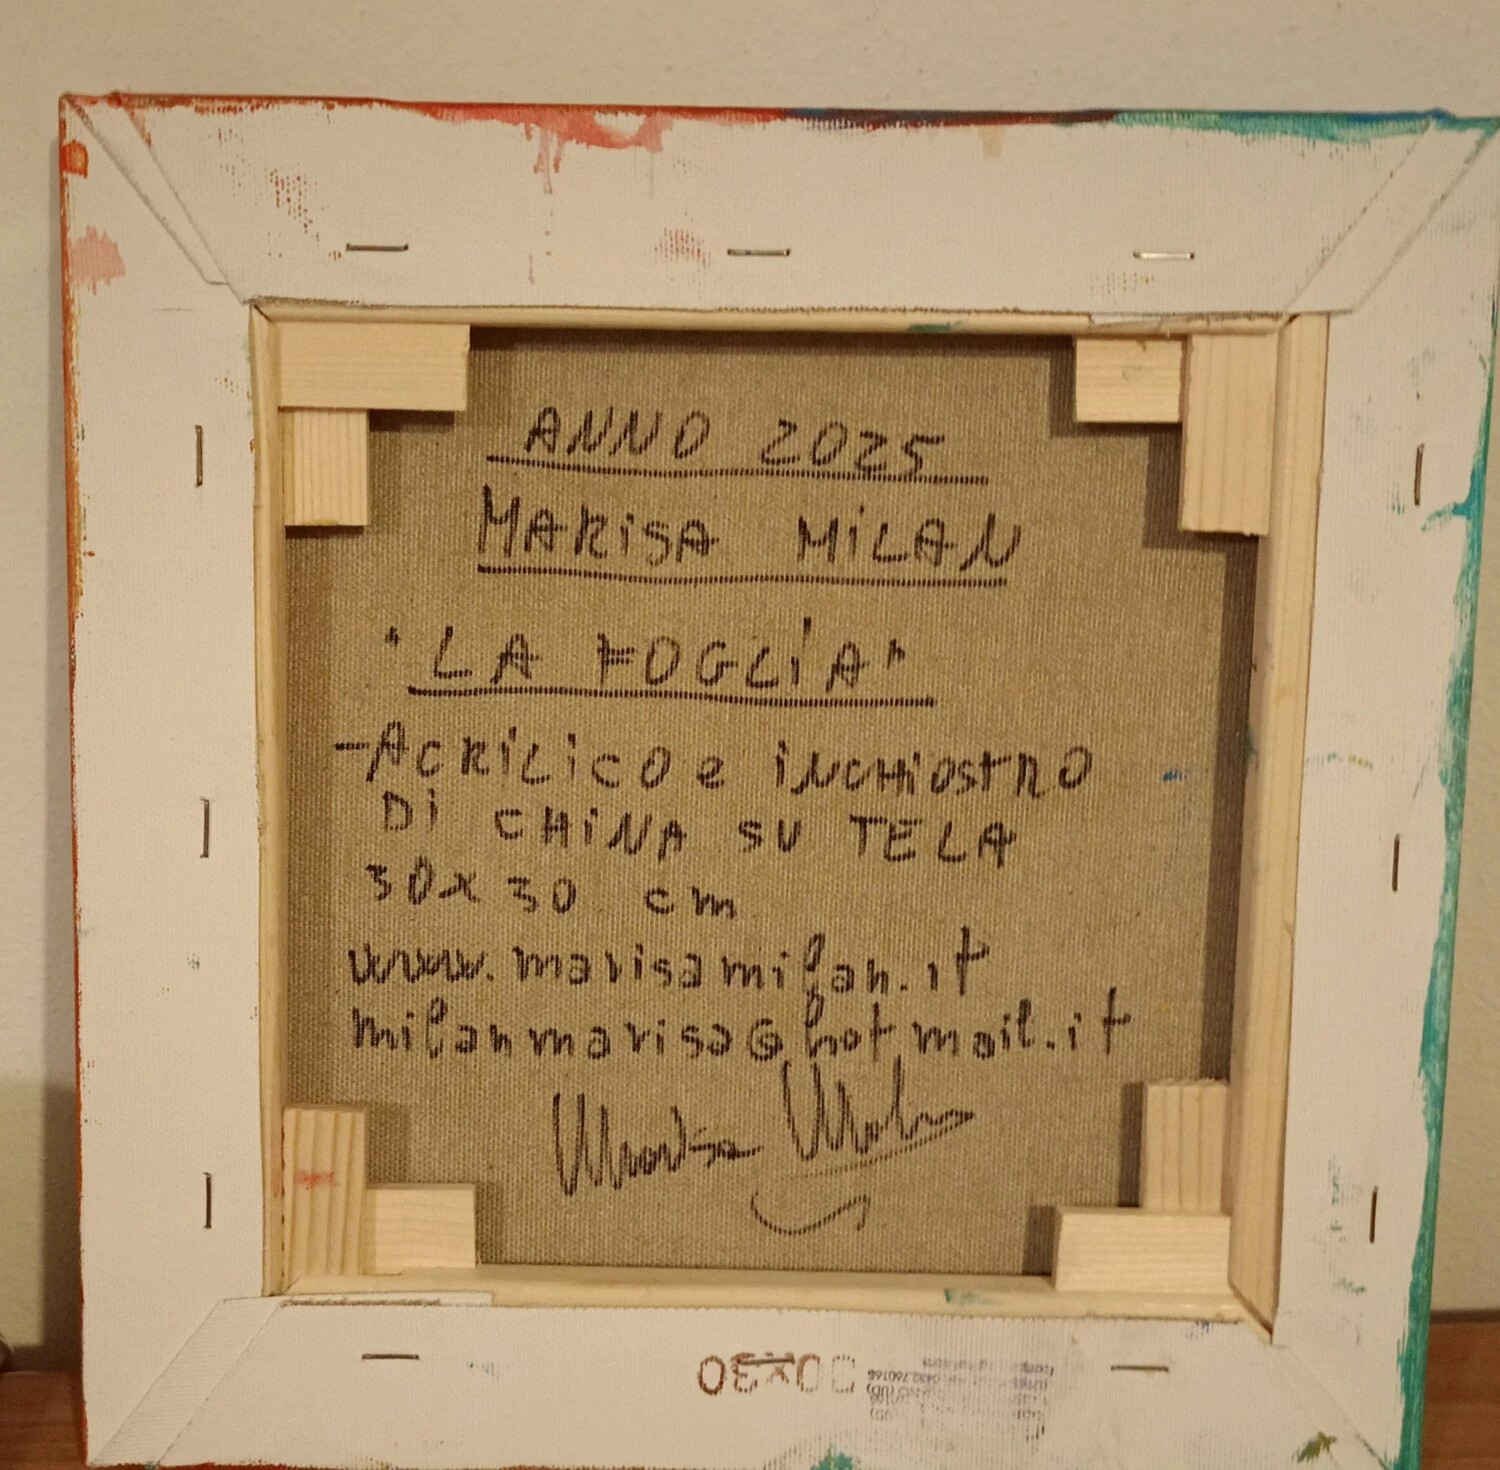 ANNO 2025
MARiSA MiLAN
"LA FOGLiA"
-ACRiLiCO e iNCHiOStRO
Di CHiNA SU TELA
30x30 cm
www.marisamilan.it
milanmarisa@hotmail.it
Marisa Milan
30x30